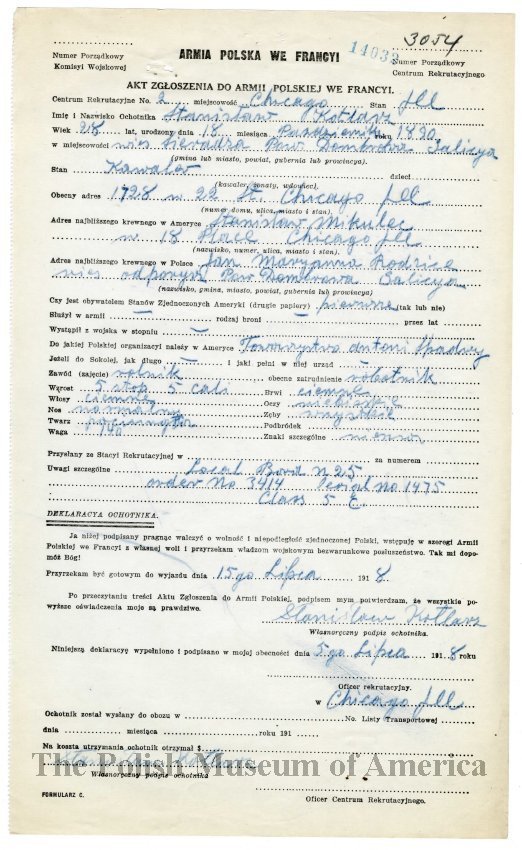 14033
3054
Numer Porządkowy
Komisyi Wojskowej
ARMIA POLSKA WE FRANCYI
Numer Porządkowy
Centrum Rekrutacyjnego
AKT ZGŁOSZENIA DO ARMII POLSKIEJ WE FRANCYI.
Centrum Rekrutacyjne No. 2 miejscowość Chicago Stan Ill
Imię i Nazwisko Ochotnika Stanisław Kotlarz
Wiek 28 lat, urodzony dnia 18 miesiąca Pazdziernik roku 1890
w miejscowości wieś Pow Dombrowa Galicya
(gmina lub miasto, powiat, gubernia lub prowincya)
Stan Kawaler dzieci
(kawaler, żonaty, wdowiec)
Obecny adres 1728 W 22 St. Chicago Ill
(numer domu, ulica, miasto i stan)
Adres najbliższego krewnego w Ameryce Stanisław Mikulec
W 18 Place Chicago Ill
(nazwisko, numer, ulica, miasto i stan)
Adres najbliższego krewnego w Polsce Jan Maryanna Rodzice
wieś Pow Dombrowa Galicya
(nazwisko, gmina, miasto, powiat, gubernia lub prowincya)
Czy jest obywatelem Stanów Zjednoczonych Ameryki (drugie papiery) pierwsze (tak lub nie)
Służył w armii — rodzaj broni — przez lat
Wystąpił z wojska w stopniu —
Do jakiej Polskiej organizacyi należy w Ameryce Towarzystwo Antoni
Jeżeli do Sokolej, jak długo — i jaki pełni w niej urząd —
Zawód (zajęcie) rolnik obecne zatrudnienie robotnik
Wzrost 5 stop 5 cali Brwi ciemne
Włosy ciemne Oczy niebieskie
Nos normalny Zęby wszystkie
Twarz Podbródek
Waga 140 Znaki szczególne niema
Przysłany ze Stacyi Rekrutacyjnej w za numerem
Uwagi szczególne Local Bord N 25
order No 3414 Serial No 1475
Class 5 E.
DEKLARACYA OCHOTNIKA.
Ja niżej podpisany pragnąc walczyć o wolność i niepodległość zjednoczonej Polski, wstępuję w szeregi Armii
Polskiej we Francyi z własnej woli i przyrzekam władzom wojskowym bezwarunkowe posłuszeństwo. Tak mi dopo-
móż Bóg!
Przyrzekam być gotowym do wyjazdu dnia 15go Lipca 1918
Po przeczytaniu treści Aktu Zgłoszenia do Armii Polskiej, podpisem mym potwierdzam, że wszystkie po-
wyższe oświadczenia moje są prawdziwe.
Stanislaw Kotlarz
Własnoręczny podpis ochotnika.
Niniejszą deklaracyę wypełniono i podpisano w mojej obecności dnia 5go Lipca 1918 roku
Oficer rekrutacyjny.
w Chicago Ill
Ochotnik został wysłany do obozu w No. Listy Transportowej
dnia miesiąca roku 191
Na koszta utrzymania ochotnik otrzymał $
Własnoręczny podpis ochotnika
The Polish Museum of America
FORMULARZ C.
Oficer Centrum Rekrutacyjnego.